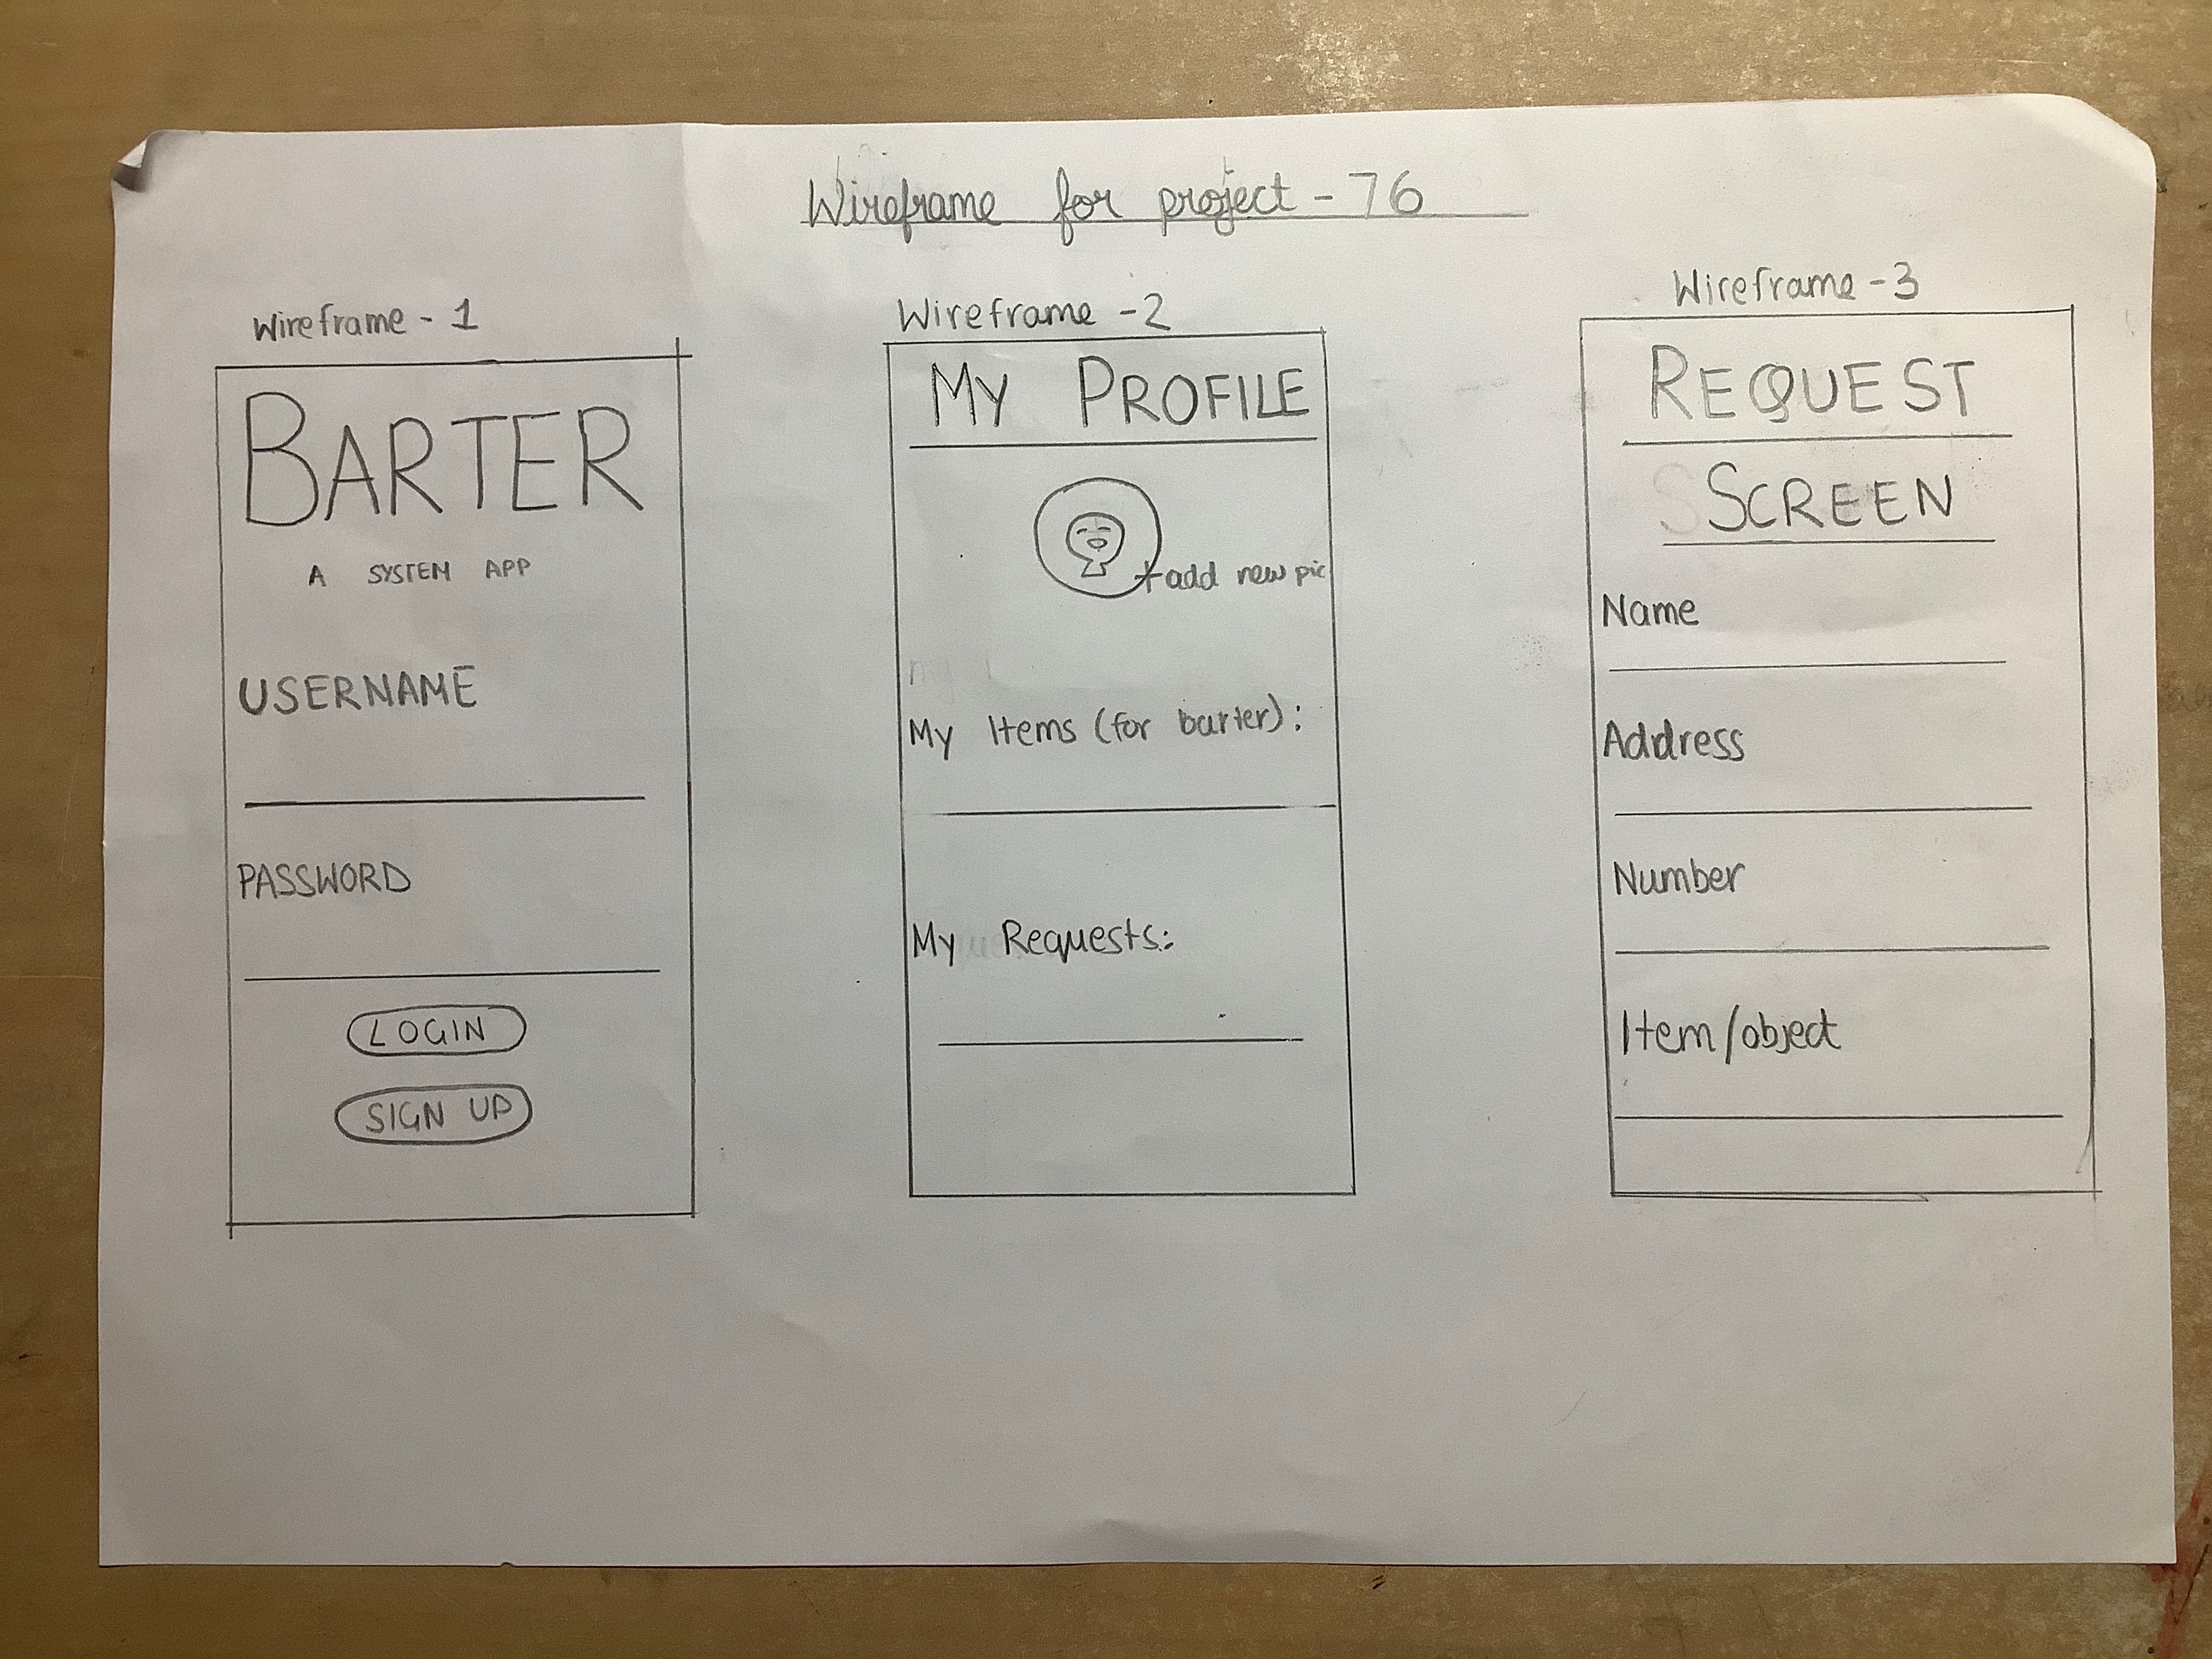 Wireframe for project - 76
Wireframe - 1
BARTER
A SYSTEM APP
USERNAME
PASSWORD
LOGIN
SIGN UP
Wireframe -2
MY PROFILE
+add new pic
My Items (for barter):
My Requests:
Wireframe -3
REQUEST
SCREEN
Name
Address
Number
Item/object